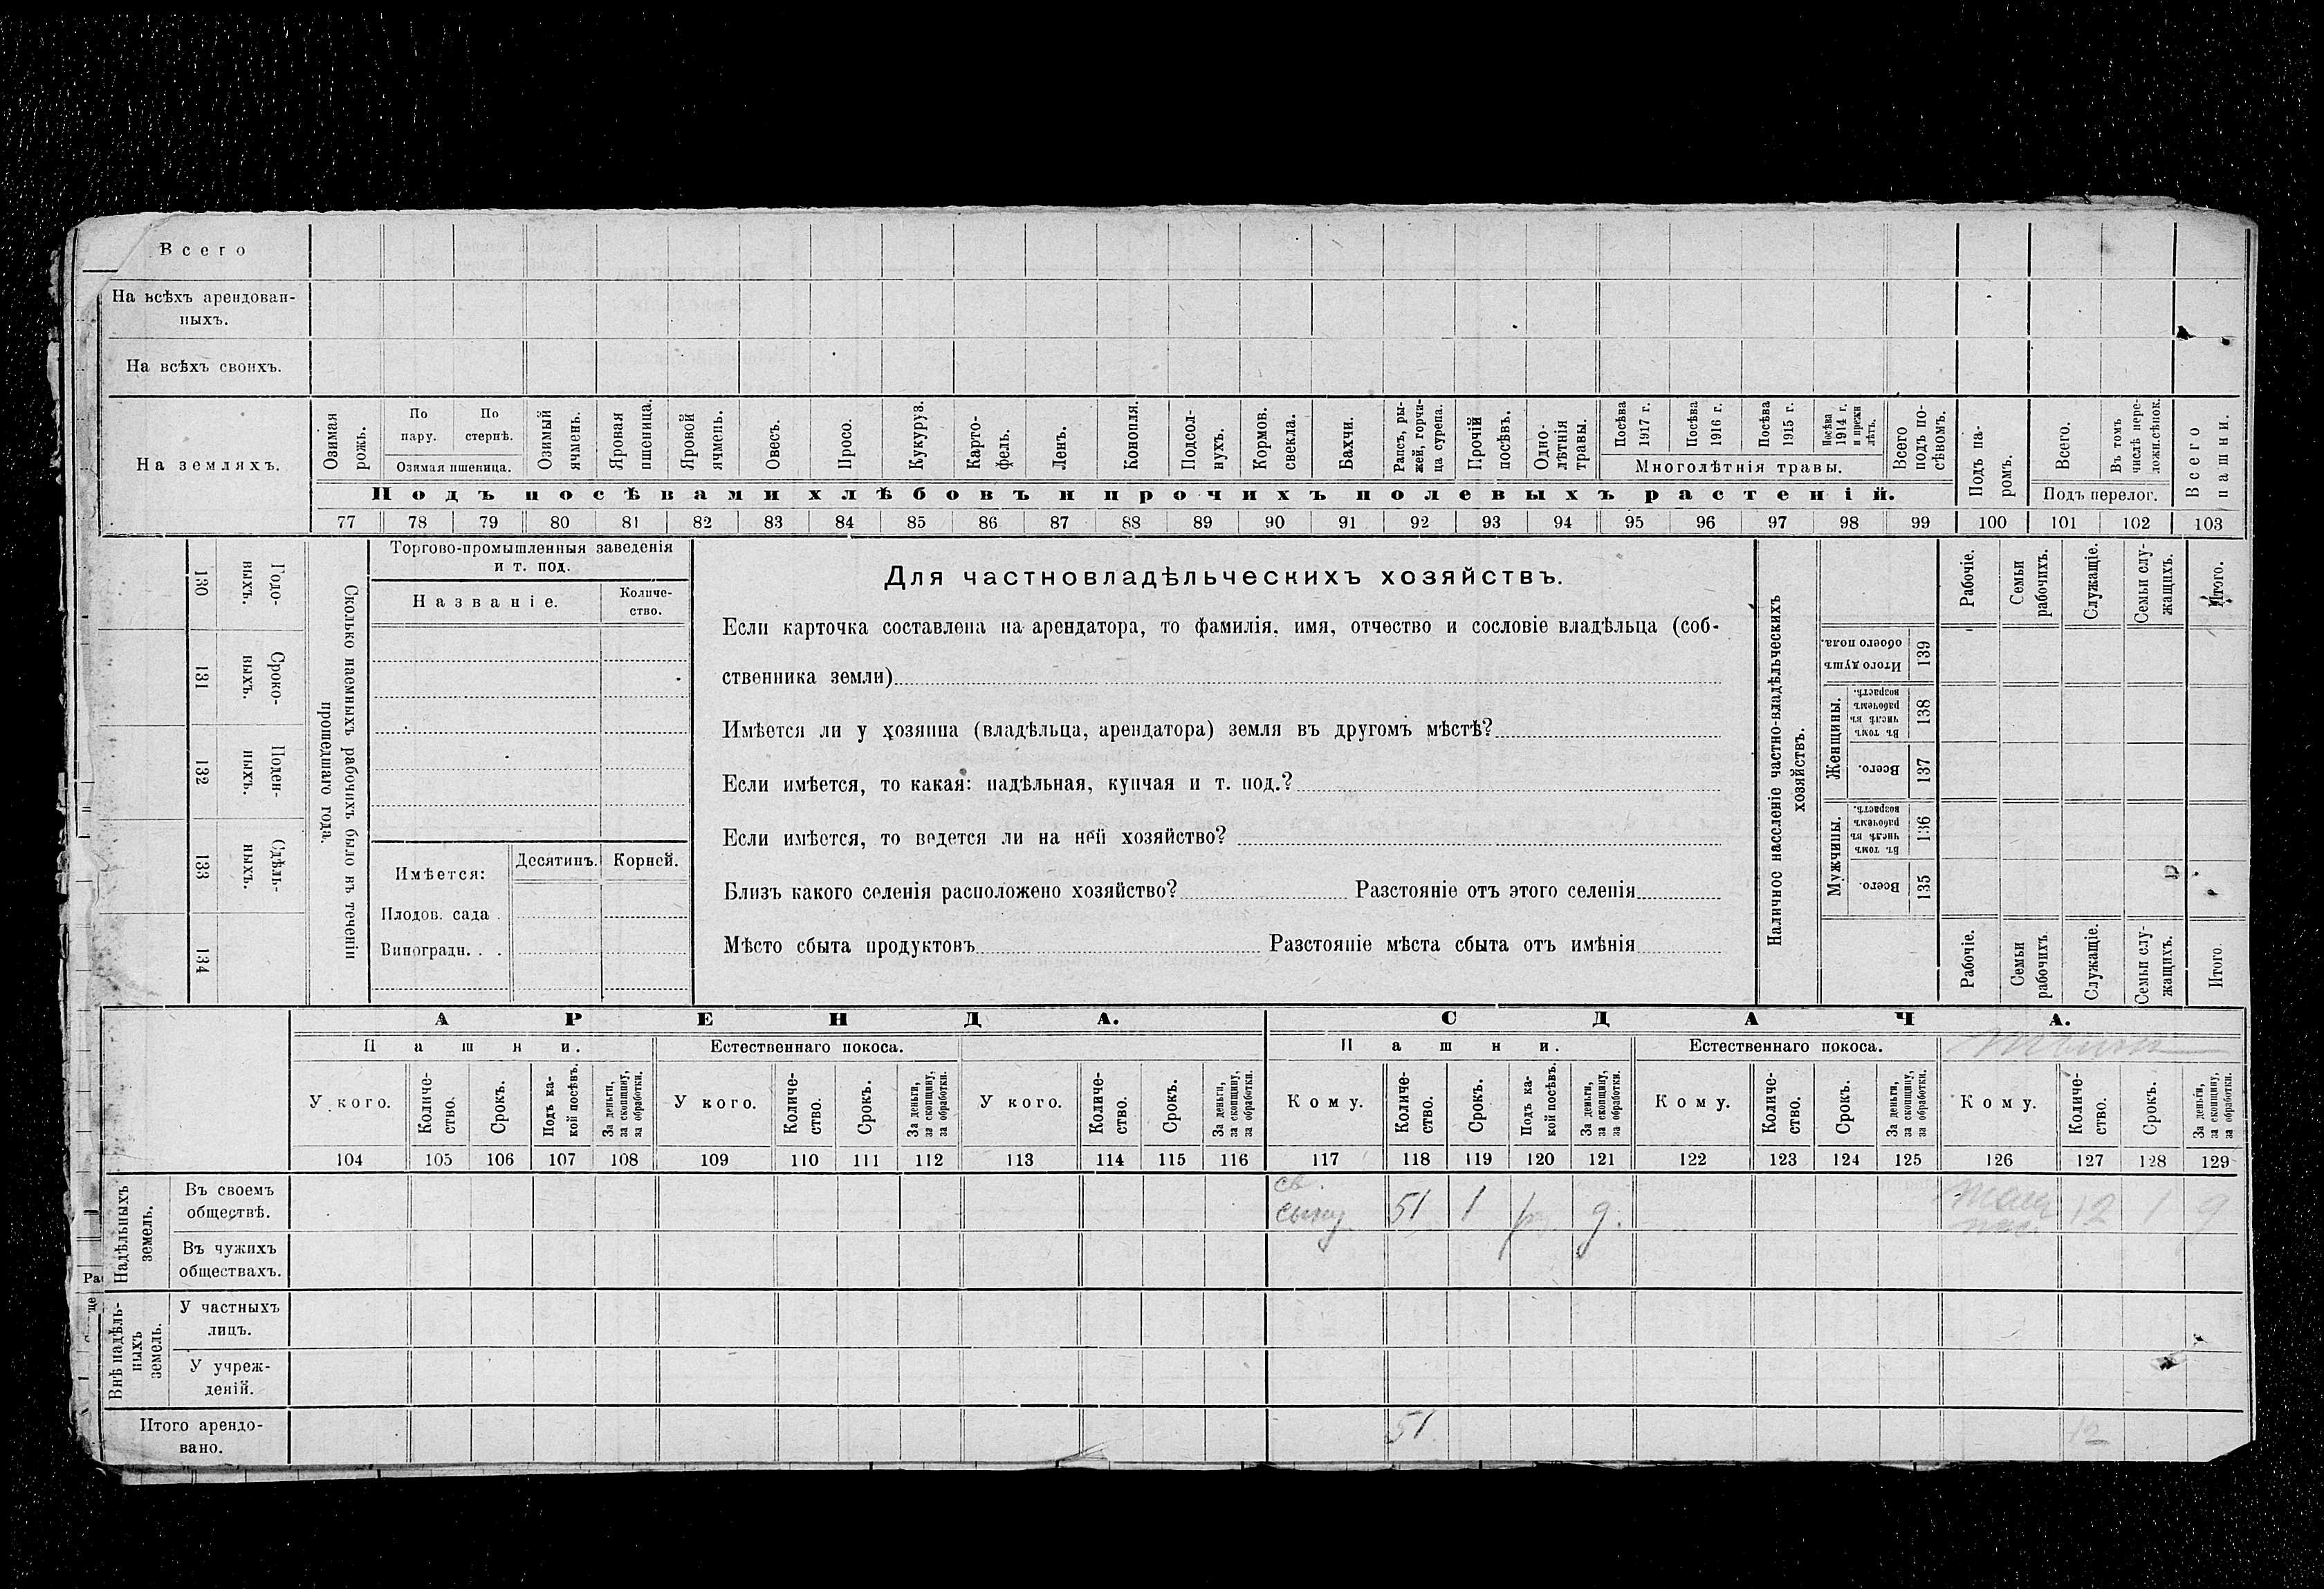 Всего
На всѣхъ арендован-
ныхъ.
На всѣхъ своихъ.
На земляхъ.
Озимая рожь.
По пару.
По стернѣ.
Озимая пшеница.
Озимый ячмень.
Яровая пшеница.
Яровой ячмень.
Овесъ.
Просо.
Кукуруз.
Карто-
фель.
Ленъ.
Конопля.
Подсол-
нухъ.
Кормов. свекла.
Бахчи.
Рапсъ, ры-
жей, горчи-
ца сурепа.
Прочій посѣвъ.
Одно-
лѣтнія травы.
Посѣва 1917 г.
Посѣва 1916 г.
Посѣва 1915 г.
Посѣва 1914 г. и прежн лѣтъ.
Многолѣтнія травы.
Всего подъ по-
сѣвомъ.
Подъ па-
ромъ.
Всего.
Въ томъ числѣ пере-
ложн.сѣнок.
Подъ перелог.
Всего пашни.
Подъ посѣвами хлѣбовъ и прочихъ полевыхъ растеній.
77 78 79 80 81 82 83 84 85 86 87 88 89 90 91 92 93 94 95 96 97 98 99 100 101 102 103
130 Годо-
выхъ.
131 Сроко-
выхъ.
132 Поден-
ныхъ.
133 Сдѣль-
ныхъ.
134
Сколько наемныхъ рабочихъ было въ теченіи
прошедшаго года.
Торгово-промышленныя заведенія
и т. под.
Названіе.
Количе-
ство.
Имѣется:
Десятинъ.
Корней.
Плодов. сада .
Виноградн. . .
Для частновладѣльческихъ хозяйствъ.
Если карточка составлена на арендатора, то фамилія, имя, отчество и сословіе владѣльца (соб-
ственника земли)
Имѣется ли у хозяина (владѣльца, арендатора) земля въ другомъ мѣстѣ?
Если имѣется, то какая: надѣльная, купчая и т. под.?
Если имѣется, то ведется ли на ней хозяйство?
Близъ какого селенія расположено хозяйство? Разстояніе отъ этого селенія
Мѣсто сбыта продуктовъ Разстояніе мѣста сбыта отъ имѣнія
Наличное населеніе частно-владѣльческихъ
хозяйствъ.
Рабочіе.
Семьи рабочихъ.
Служащіе.
Семьи слу-
жащихъ.
Итого.
Итого душъ обоего пола. 139
Женщины.
Въ томъ числѣ въ рабочемъ возрастѣ. 138
Всего. 137
Мужчины.
Въ томъ числѣ въ рабочемъ возрастѣ. 136
Всего. 135
Рабочіе.
Семьи рабочихъ
Служащіе.
Семьи слу-
жащихъ.
Итого.
АРЕНДА.
СДАЧА.
Пашни.
Естественнаго покоса.
Пашни.
Естественнаго покоса.
У кого.
Количе-
ство.
Срокъ.
Подъ ка-
кой посѣвъ.
За деньги, за скопщину, за обработки.
У кого.
Количе-
ство.
Срокъ.
За деньги, за скопщину, за обработки.
У кого.
Количе-
ство.
Срокъ.
За деньги, за скопщину, за обработки.
Кому.
Количе-
ство.
Срокъ.
Подъ ка-
кой посѣвъ.
За деньги, за скопщину, за обработки.
Кому.
Количе-
ство.
Срокъ.
За деньги, за скопщину, за обработки.
Кому.
Количе-
ство.
Срокъ.
За деньги, за скопщину, за обработки.
104 105 106 107 108 109 110 111 112 113 114 115 116 117 118 119 120 121 122 123 124 125 126 127 128 129
Надѣльныхъ
земель.
Въ своемъ
обществѣ.
св.
сыну 51 1 д. 12 1 д
Въ чужихъ
обществахъ.
Внѣ надѣль-
ныхъ
земель.
У частныхъ
лицъ.
У учреж-
деній.
Итого арендо-
вано.
51 12
Ра